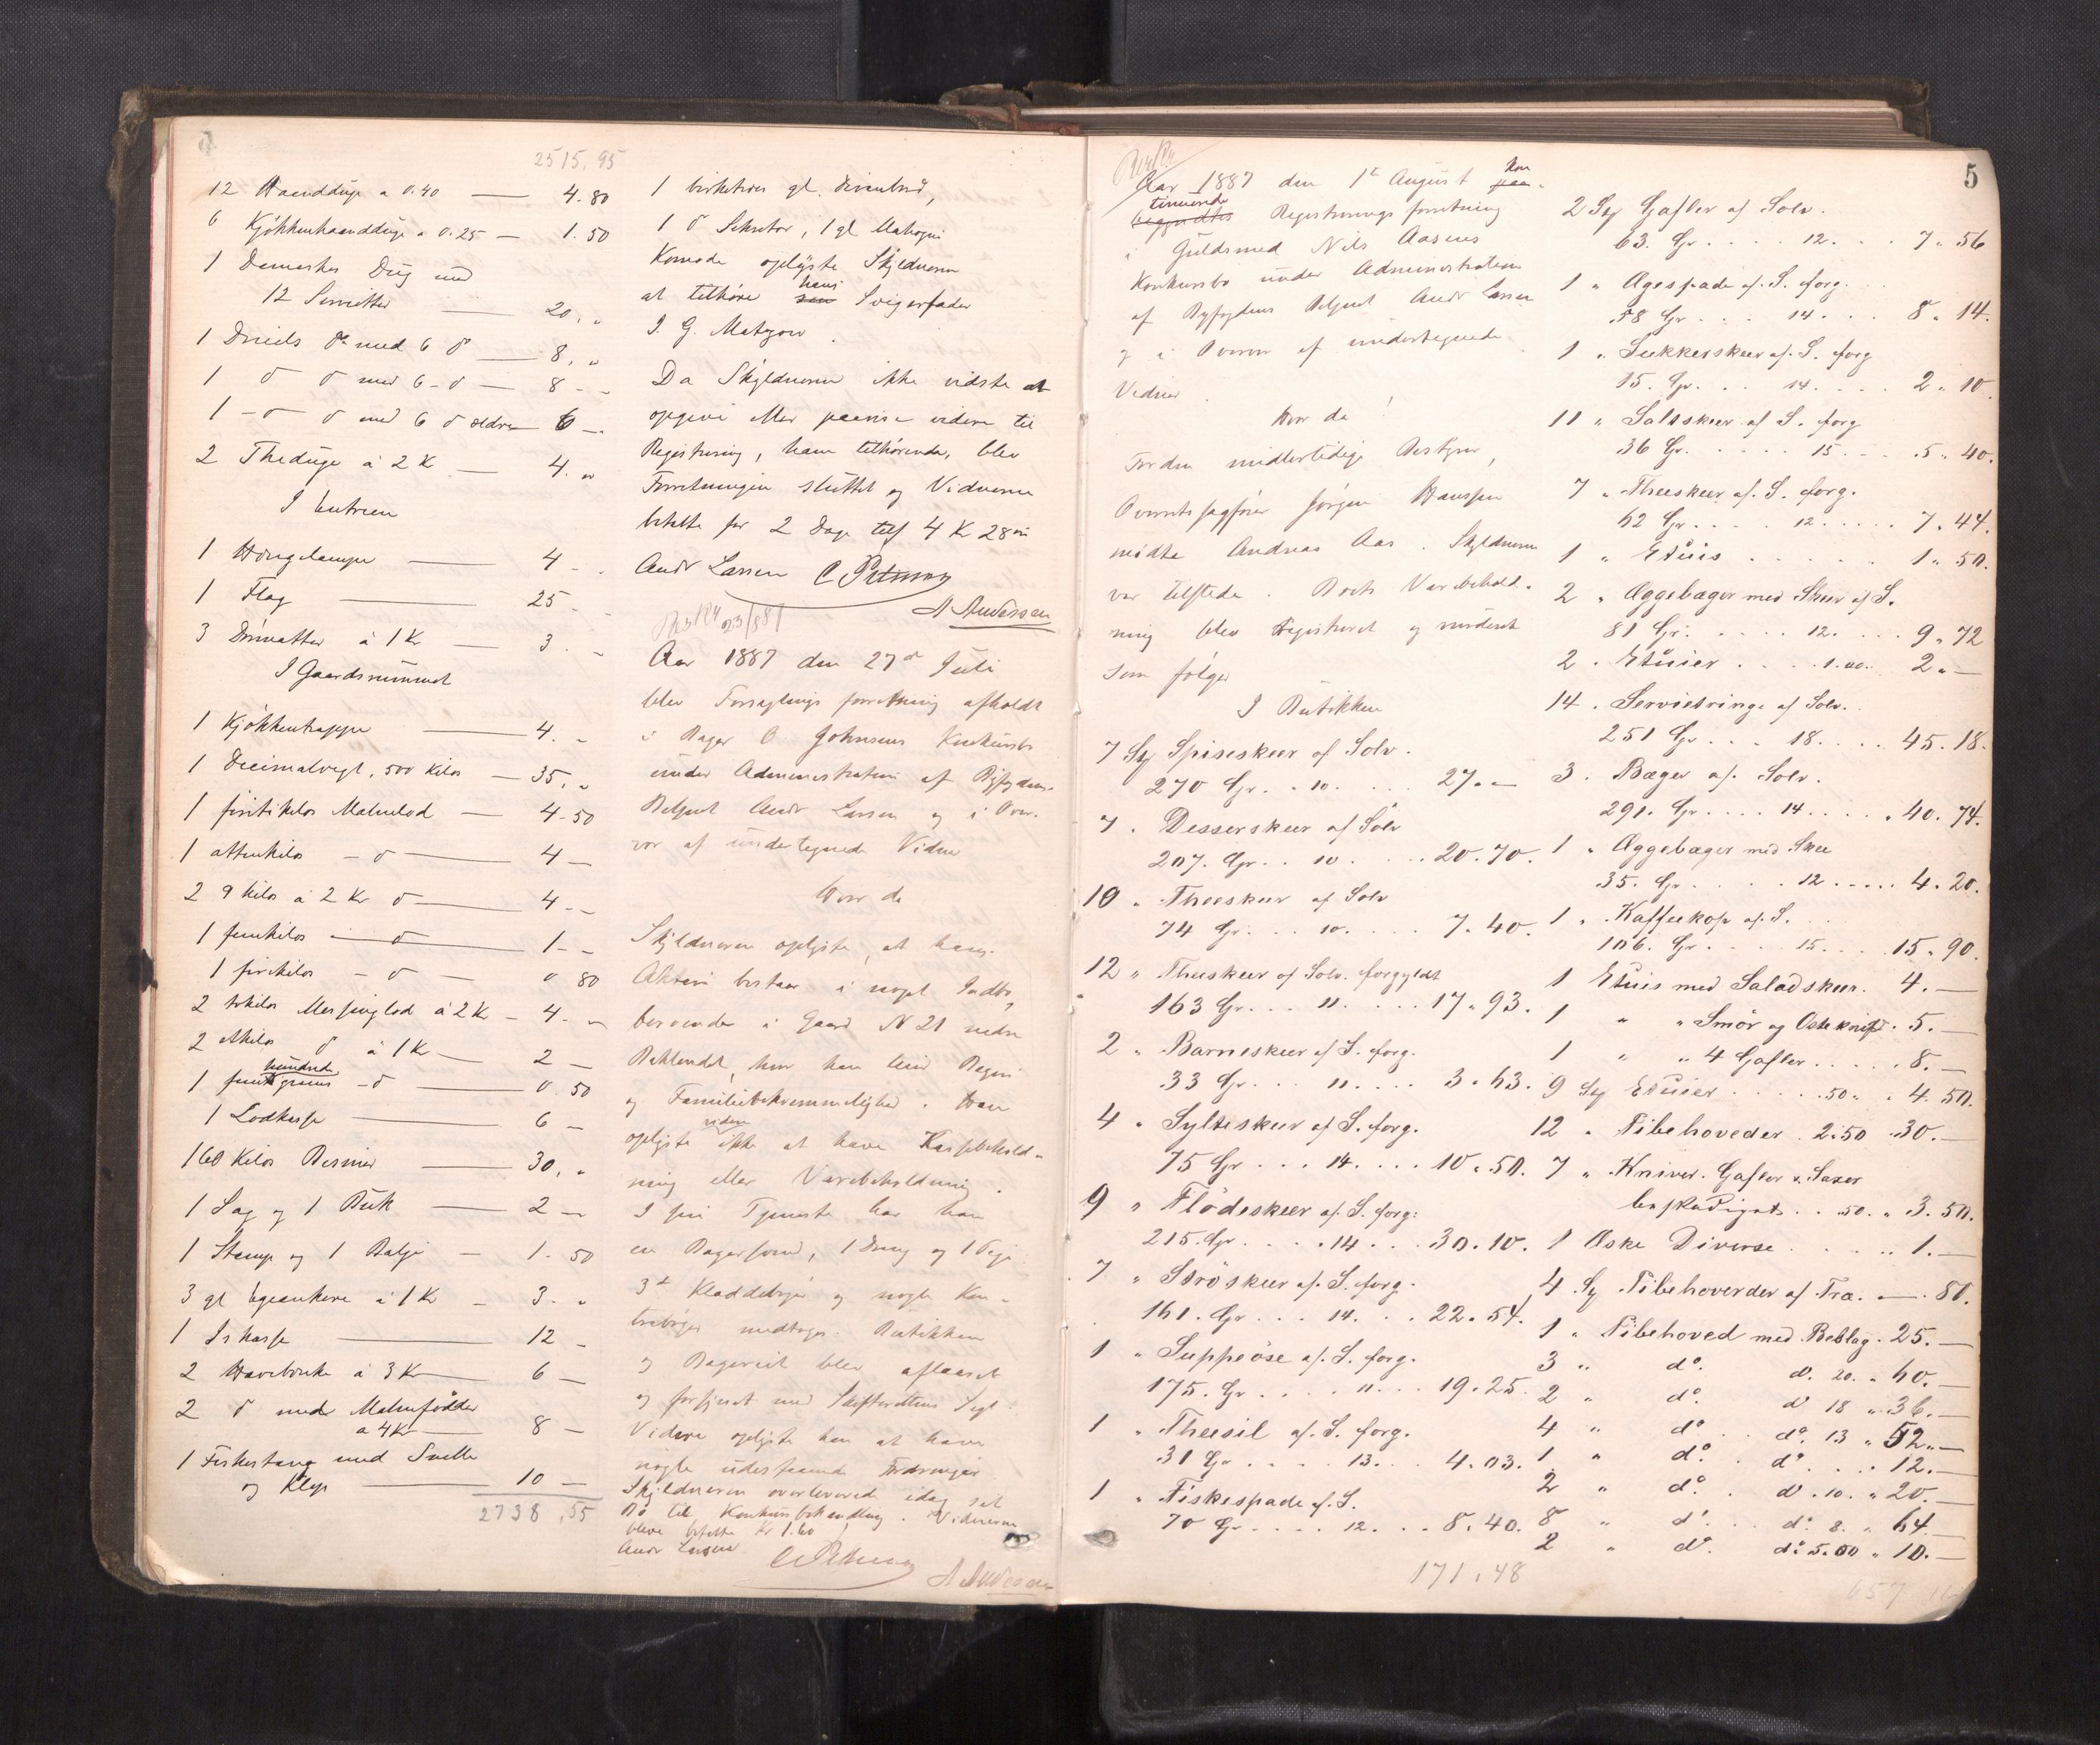 2515,95
12 Haandduge a 0.40 — 4.80
6 Kjökkenhaandduge a 0.25 — 1.50
1 Damaskes Dug med
12 Servietter — 20,"
1 Dreiels do med 6 do — 8,"
1 do do med 6 - do — 8 - -
1 - do do med 6 do ældre 6 -
2 Theduge à 2 K — 4."
I Entreen
1 Hængelampe — 4 -
1 Flag — 25 -
3 Dörmatter à 1 Kr — 3. -
I Gaardsrummet
1 Kjökkentrappe — 4. -
1 Decimalvegt, 500 Kilos — 35,"
1 firtikilos Malmlod — 4-50
1 attenkilos - do — 4 —
2 9 kilos à 2 Kr do — 4 - -
1 femkilos - do — 1 - -
1 firekilos - do — 0 80
2 tokilos Messinglod à 2 Kr — 4 - "
2 etkilos do à 1 Kr — 2 —
hundrede
1 fem grams - do — 0.50
1 Lodkasse — 6 —
160 Kilos Bismer — 30,"
1 Sag og 1 Buk — 2 —
1 Stamp og 1 Balje — 1. 50
3 gl Egeankere à 1 Kr — 3. "
1 Iskasse — 12 -
2 Havebænke à 3 Kr — 6 —
2 do med Malmfødder
a 4 Kr — 8 —
1 Fiskestang med Snelle
og Klep — 10 —
2738,55
1 birketræs gl. Divanbord,
1 do Sekretær, 1 gl Mahogni
Komode oplyste Skyldneren
hans
at tilhöre sin Svigerfader
J. G. Matzow.
Da Skyldneren ikke vidste at
opgive eller paavise videre til
Registrering, ham tilhörende, blev
Forretningen sluttet og Vidnerne
betalte for 2 Dage tils 4 K 28 øre
Andr Larsen C Petersen
A Andersen
23/8 87
Aar 1887 den 27de Juli
blev Forseglings forretning afholdt
i Bager O Johnsens Konkursbo
under Administration af Byfogdens
Betjent Andr Larsen og i Over-
vær af undertegnede Vidner
Hvor da
Skyldneren oplyste, at hans
Aktiva bestaar i noget Indbo,
beroende i Gaard N 21 nedre
Baklandet, hvor han bor Bageri
og Familiebekvemmelighed. Han
videre
oplyste ikke at have Kassebehold-
ning eller Varebeholdning.
I sin Tjeneste har han
en Bagersvend, 1 Dreng og 1 Pige
3de Kladdebøger og nogle Kon-
trabøger medtoges. Butikken
og Bageriet blev aflaaset
og forsynet med Skifterettens Segl.
Videre oplyste han at have
nogle udestaaende Fordringer
Skyldneren overleverede idag sit
Bo til Konkursbehandling. Vidnerne
bleve betalte Kr 1.60
Andr Larsen
C Petersen
A Andersen
5
Aar 1887 den 1ste August kon
paa-
tinuerede
begyndtes Registrerings forretning
i Guldsmed Nils Aasens
Konkursbo under Administration
af Byfogdens Betjent Andr Larsen
og i Overvær af undertegnede
Vidner.
Hvor da!
For den midlertidige Bestyrer,
Overretssagfører Jörgen Hanssen
mödte Andreas Aas. Skyldneren
var tilstede. Boets Varebehold-
ning blev registreret og vurderet
som følger
I Butikken
7 Stg Spiseskeer af Solv.
270 Gr. . 10. . . . 27. —
7. Desserskeer af Sölv
207. Gr. . 10. . . . 20.70.
10 " Theeskeer af Sölv
74 Gr. . . 10. . . . 7.40.
12 " Theeskeer af Solv. forgyldt
163 Gr. . . 11. . . . 17.93.
2 " Barneskeer af S. forg.
33 Gr. . . 11. . . . 3.63.
4 " Sylteskeer af S. forg.
75 Gr. . . 14. . . . 10.50.
9 " Flödeskeer af S. forg:
215. Gr. . . . 14. . . 30.10.
7 " Ströskeer af S. forg.
161. Gr. . . 14. . . 22.54.
1 " Suppeöse af. S. forg.
175. Gr. . . . 11. . . 19.25.
1 " Theesil af. S. forg.
31 Gr. . . . 13. . . 4.03.
1 " Fiskespade af. S.
70 Gr. . . . 12. . . 8.40.
171,48
2 Stg Gafler af Solv.
63. Gr. . . . 12. . . 7.56
1 " Agespade af. S. forg. . .
58 Gr. . . . 14. . . 8.14.
1 " Sukkerskeer af. S. forg
15. Gr. . . 14. . . . 2.10
11 " Saltskeer af S. forg
36 Gr. . . . . 15. . . 5.40.
7 " Theeskeer af. S. forg.
62 Gr. . . . 12. . . . 7.44.
1 " Etüis . . . . . 1.50.
2 " Æggebæger med Skeer af S.
81 Gr. . . . . 12. . . . 9.72
2. Etüier . . . . 1.00. . 2. —
14. Servietringe af Solv.
251 Gr. . . 18. . . . 45.18.
3. Bæger af. Solv.
291. Gr. . . . 14. . . . 40.74.
1 " Æggebæger med Skee
35. Gr. . . . . 12 . . . . . 4.20.
1 " Kaffeekop af. S.
106. Gr. . . . 15. . . . 15.90.
1 Etuis med Saladskeer. 4. —
1 " " Smör og Osteknif. 5. —
1 " " 4 Gafler . . . . . 8. —
9 Stg Etüier . . . . . 50 " . 4.50.
12 " Pibehoveder. 2.50 . 30. —
7 " Kniver. Gafler v. Saxer
beskadigede . . 50. " 3.50.
1 Æske Diverse . . . . . 1. —
4 Stg Pibehoverder af Træ. — . 80.
1 " Pibehoved med Beslag. 25. —
3 " do. do. 20. " 60. —
2 " do. do 18 " 36. —
4 " do. . do. 13 " 52. —
1 " do. . do. . . . 12. —
2 " do. . do. 10. " 20. —
8 " do. . . do. 8. " 64. —
2 " do. do. 5.00 " 10. —